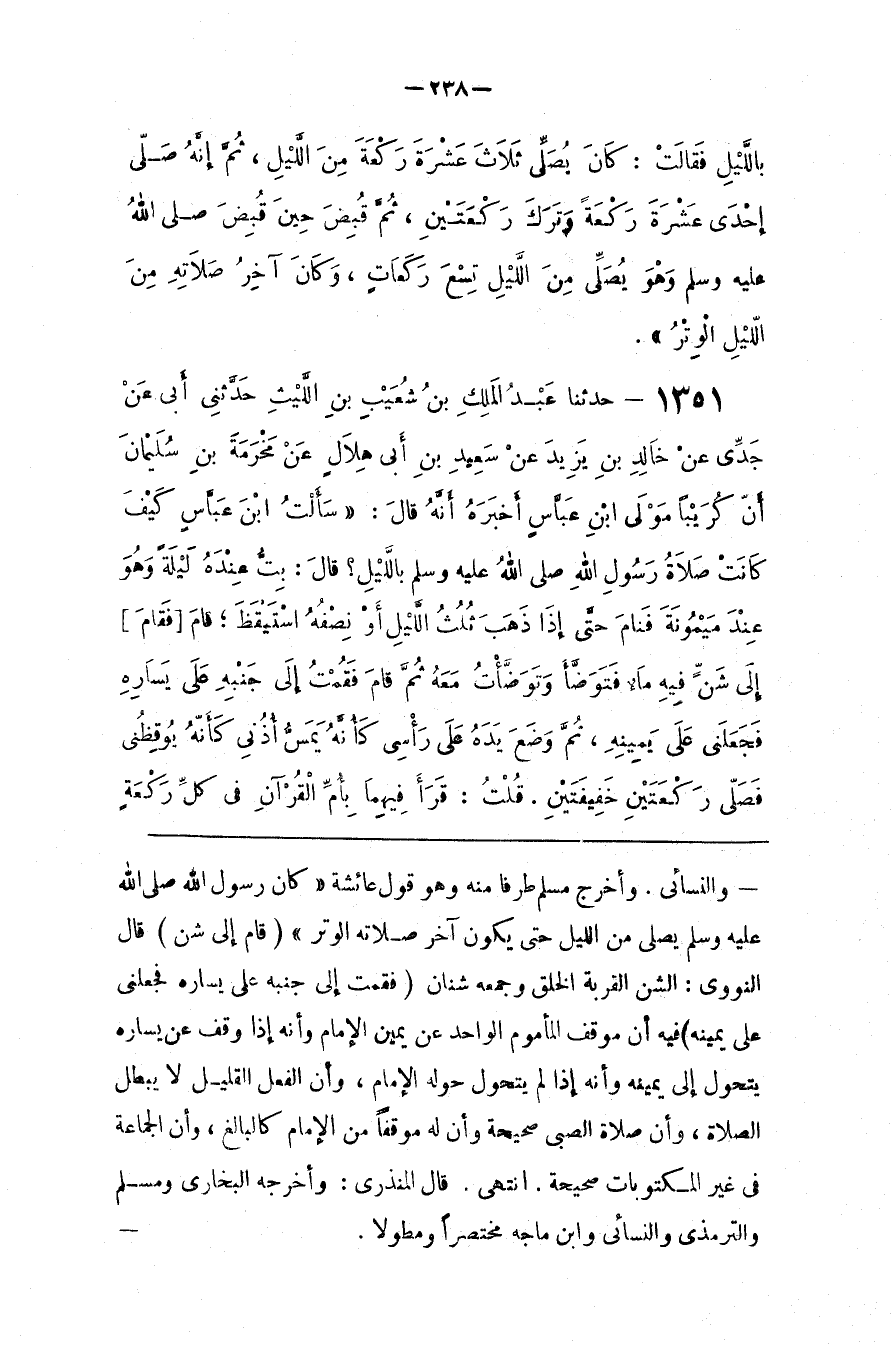 — ٢٣٨ —
بِاللَّيْلِ فَقَالَتْ : كَانَ يُصَلِّى ثَلَاثَ عَشْرَةَ رَكْعَةَ مِنَ اللَّيْلِ ، ثُمَّ إِنَّهُ صَلَّى
إِحْدَى عَشْرَةَ رَكْعَةً وَتَرَكَ رَكْعَتَيْنِ ، ثُمَّ قُبِضَ حِينَ قُبِضَ صلى اللهُ
عليه وسلم وَهْوَ يُصَلِّى مِنَ اللَّيْلِ تِسْعَ رَكَعَاتٍ ، وَكَانَ آخِرُ صَلَاتِهِ مِنَ
اللَّيْلِ الْوِتْرُ » .
١٣٥١ — حدثنا عَبْدُ الْمَلِكِ بنُ شُعَيْبِ بنِ اللَّيْثِ حَدَّثنِى أَبى عَنْ
جَدِّى عنْ خَالِدِ بنِ يَزِيدَ عنْ سَعِيدِ بنِ أَبى هِلَالٍ عَنْ مَخْرَمَةَ بنِ سُلَيْمَانَ
أَنّ كُرَيْبًا مَوْلَى ابْنِ عَبَّاسٍ أَخبَرَهُ أَنَّهُ قالَ : « سَأَلْتُ ابْنَ عَبَّاسٍ كَيْفَ
كَانَتْ صَلَاةُ رَسُولِ اللهِ صلى اللهُ عليه وسلم بِاللَّيْلِ؟ قالَ : بِتُّ عِنْدَهُ لَيْلَةً وَهُوَ
عِنْدَ مَيْمُونَةَ فَنامَ حتَّى إِذَا ذَهَبَ ثُلُثُ اللَّيْلِ أَوْ نِصْفُهُ اسْتَيْقَظَ ؛ قامَ [فَقَامَ]
إِلَى شَنٍّ فِيهِ مَاء فَتَوَضَّأَ وَتَوَضَّأْتُ مَعَهُ ثُمَّ قامَ فَقُمْتُ إِلَى جَنْبِهِ عَلَى يَسَارِهِ
فَجَعَلَنى عَلَى يَمِينِهِ ، ثُمَّ وَضَعَ يَدَهُ عَلَى رَأْسِى كَأَنَّهُ يَمَسُّ أُذُنِى كَأَنّهُ يُوقِظُنى
فَصَلَّى رَكْعَتَيْنِ خَفِيفَتَيْنِ . قُلْتُ : قَرَأَ فِيهِمَا بِأُمِّ الْقُرْآنِ فى كلِّ رَكْعَةٍ
— والنسائى . وأخرج مسلم طرفا منه وهو قول عائشة « كان رسول الله صلى الله
عليه وسلم يصلى من الليل حتى يكون آخر صلاته الوتر » ( قام إلى شن ) قال
النووى : الشن القربة الخلق وجمعه شنان ( فقمت إلى جنبه على يساره فجعلنى
على يمينه)فيه أن موقف المأموم الواحد عن يمين الإمام وأنه إذا وقف عن يساره
يتحول إلى يمينه وأنه إذا لم يتحول حوله الإمام ، وأن الفعل القليل لا يبطل
الصلاة ، وأن صلاة الصبى صحيحة وأن له موقفاً من الإمام كالبالغ ، وأن الجماعة
فى غير المكتوبات صحيحة . انتهى . قال المنذرى : وأخرجه البخارى ومسلم
والترمذى والنسائى وابن ماجه مختصراً ومطولا . —